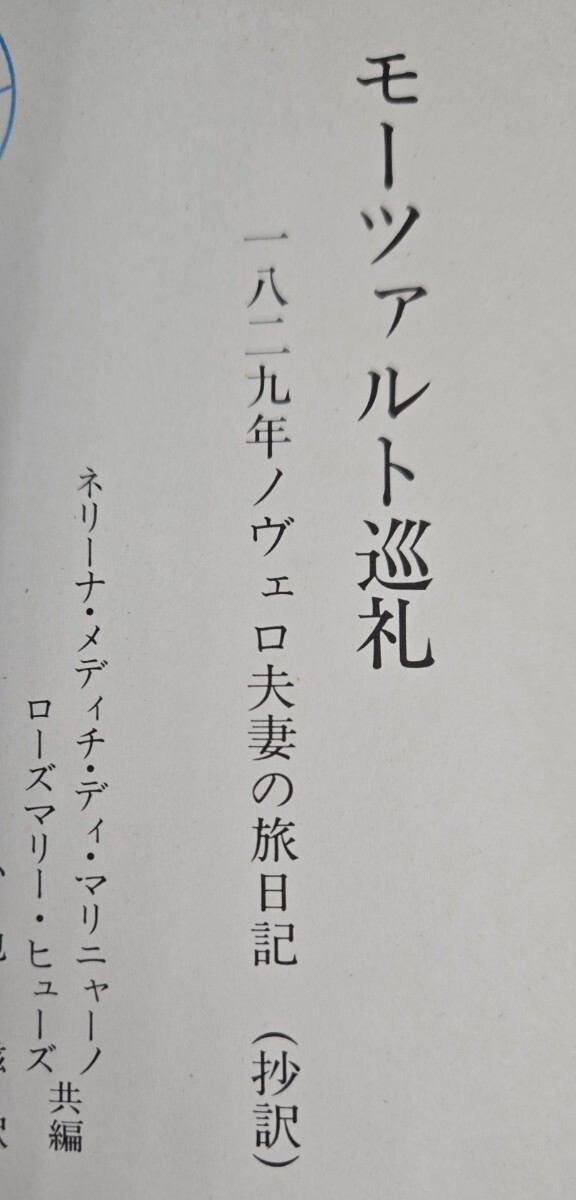 モーツァルト巡礼
一八二九年ノヴェロ夫妻の旅日記 (抄訳)
ネリーナ・メディチ・ディ・マリニャーノ
ローズマリー・ヒューズ
共編